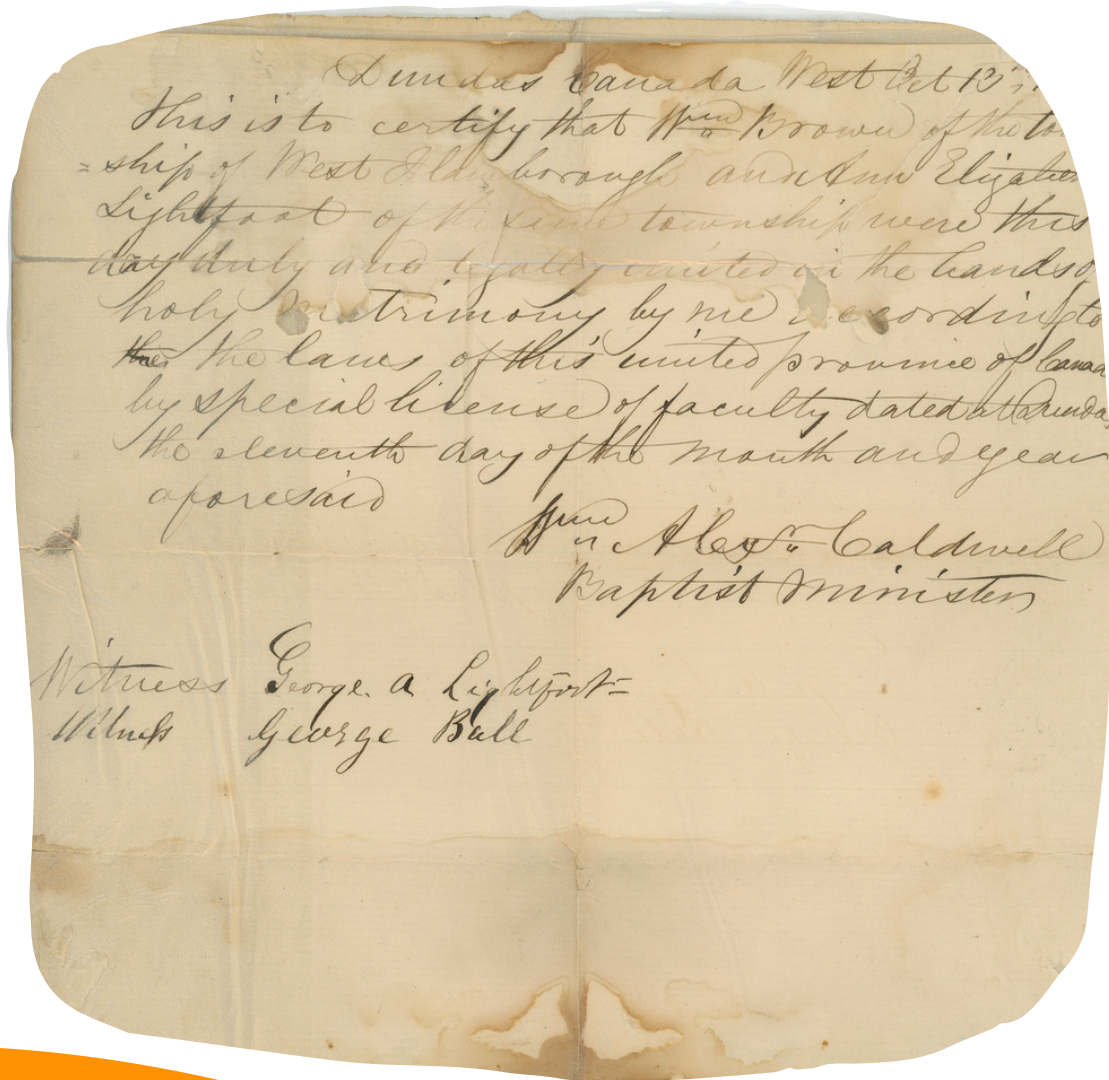 Dundas Canada West Oct 13
This is to certify that Wm Brown of the to
=ship of West Flamborough and Ann Elizabe
Lightfoot of the same township were this
day duly and legally united in the bands o
holy matrimony by me according to
the the laws of this united province of Canad
by special license of faculty dated at Dunda
the eleventh day of the month and year
aforesaid
Wm Alexr Caldwell
Baptist Minister
Witness George. A Lightfoot=
Witness George Ball